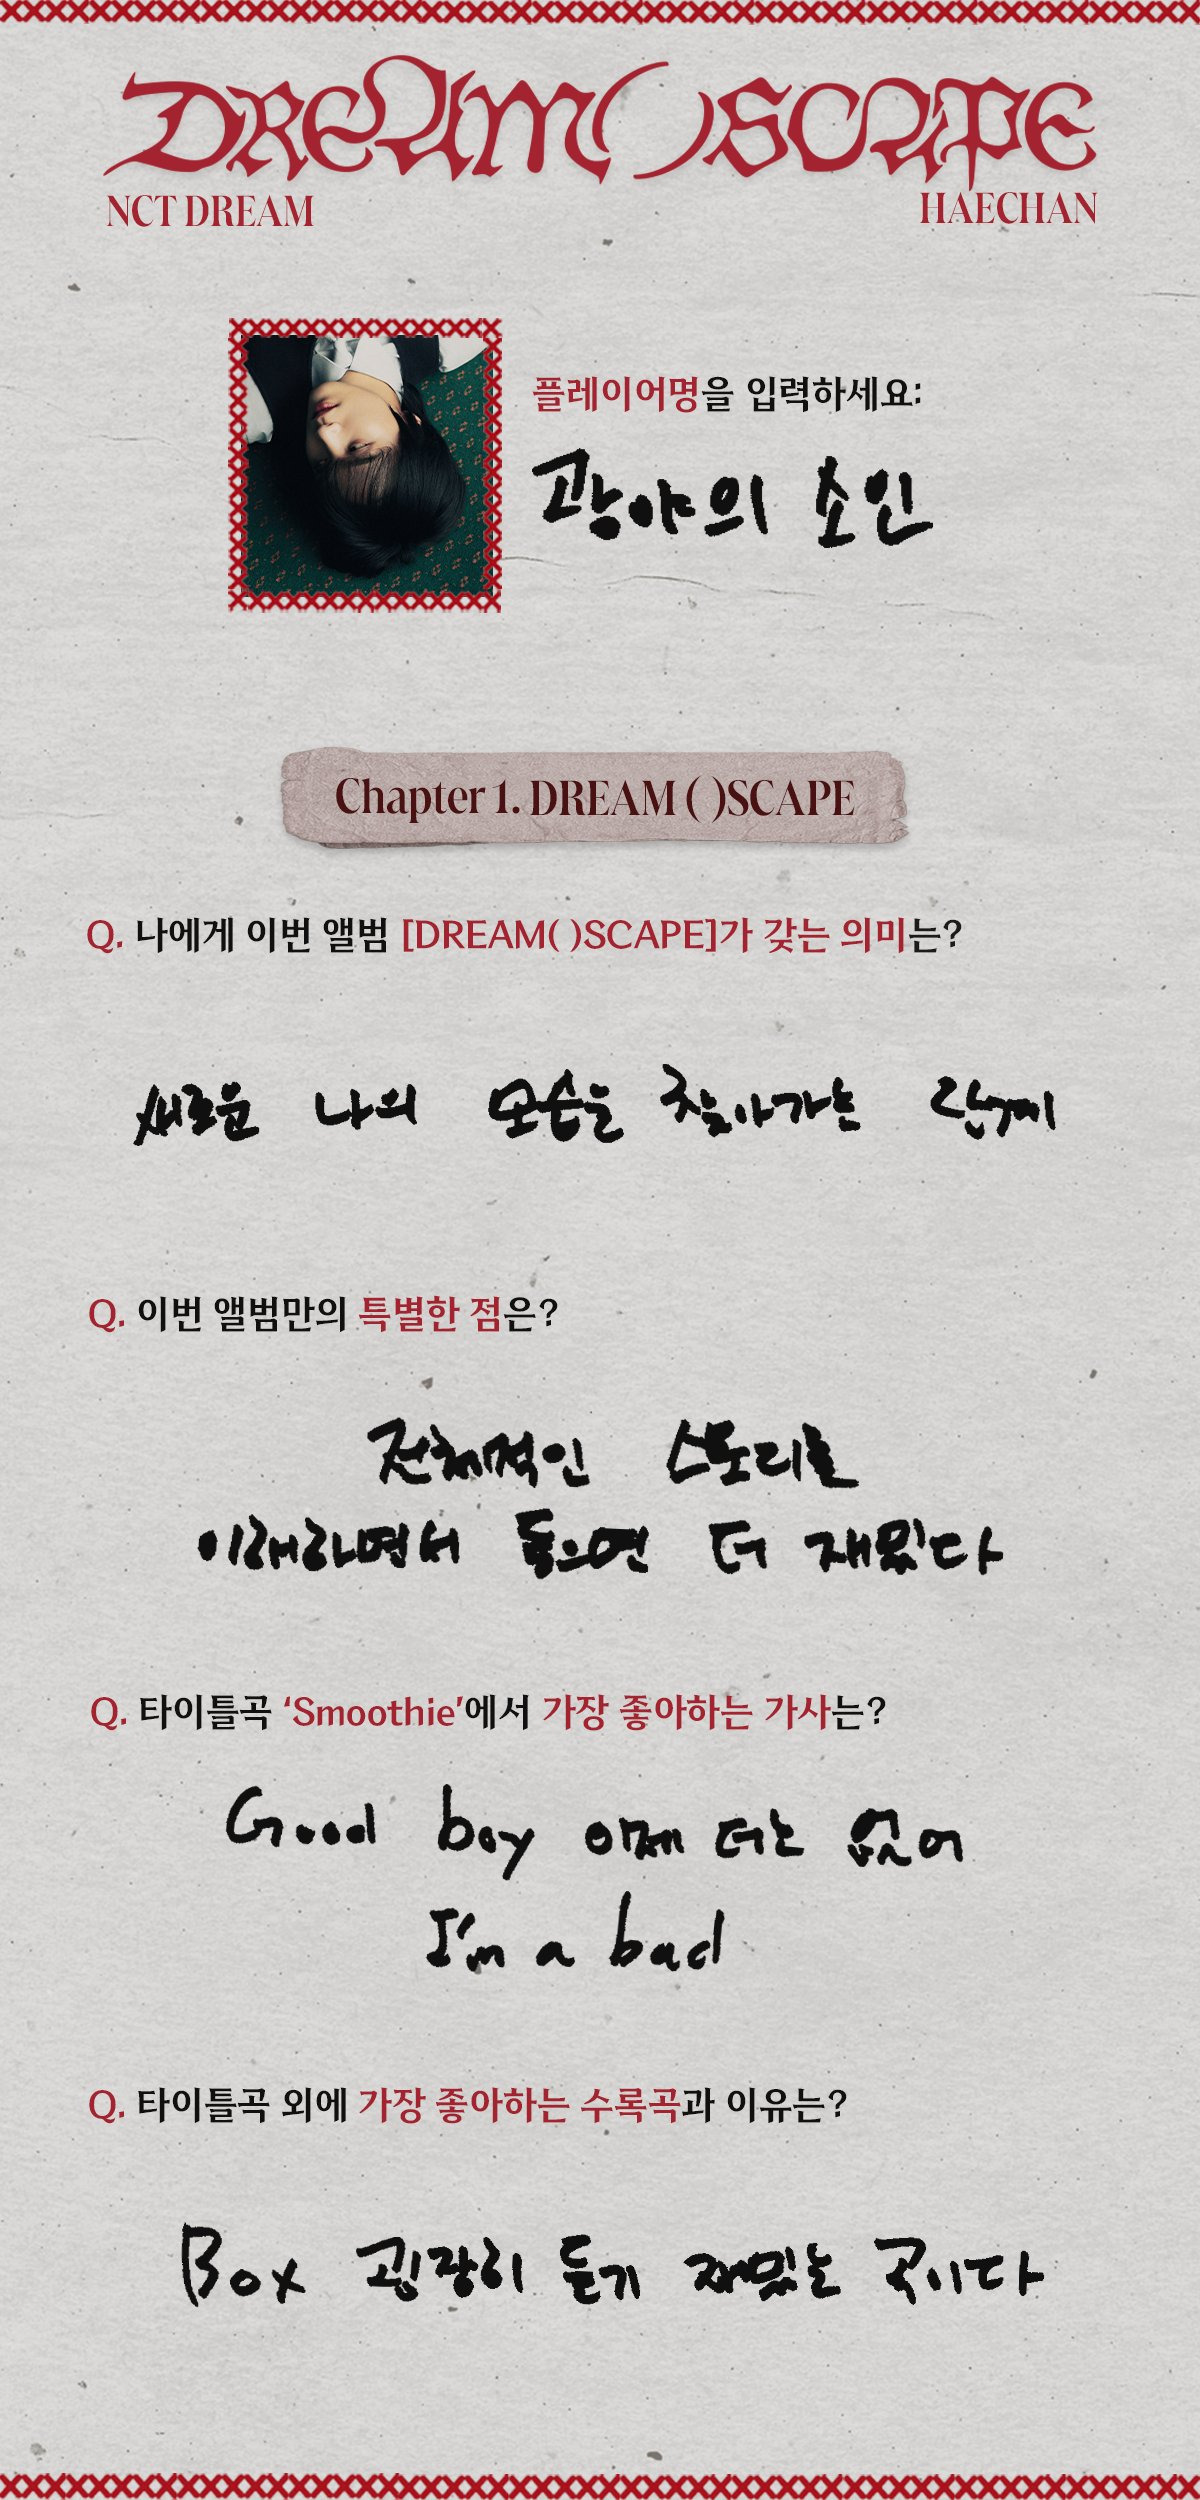 DREAM( )SCAPE
NCT DREAM
HAECHAN
플레이어명을 입력하세요:
광야의 소인
Chapter 1. DREAM ( )SCAPE
Q. 나에게 이번 앨범 [DREAM( )SCAPE]가 갖는 의미는?
새로운 나의 모습을 찾아가는 단계
Q. 이번 앨범만의 특별한 점은?
전체적인 스토리를
이해하면서 들으면 더 재밌다
Q. 타이틀곡 ‘Smoothie’에서 가장 좋아하는 가사는?
Good boy 이제 더는 없어
I'm a bad
Q. 타이틀곡 외에 가장 좋아하는 수록곡과 이유는?
Box 굉장히 듣기 재밌는 곡이다